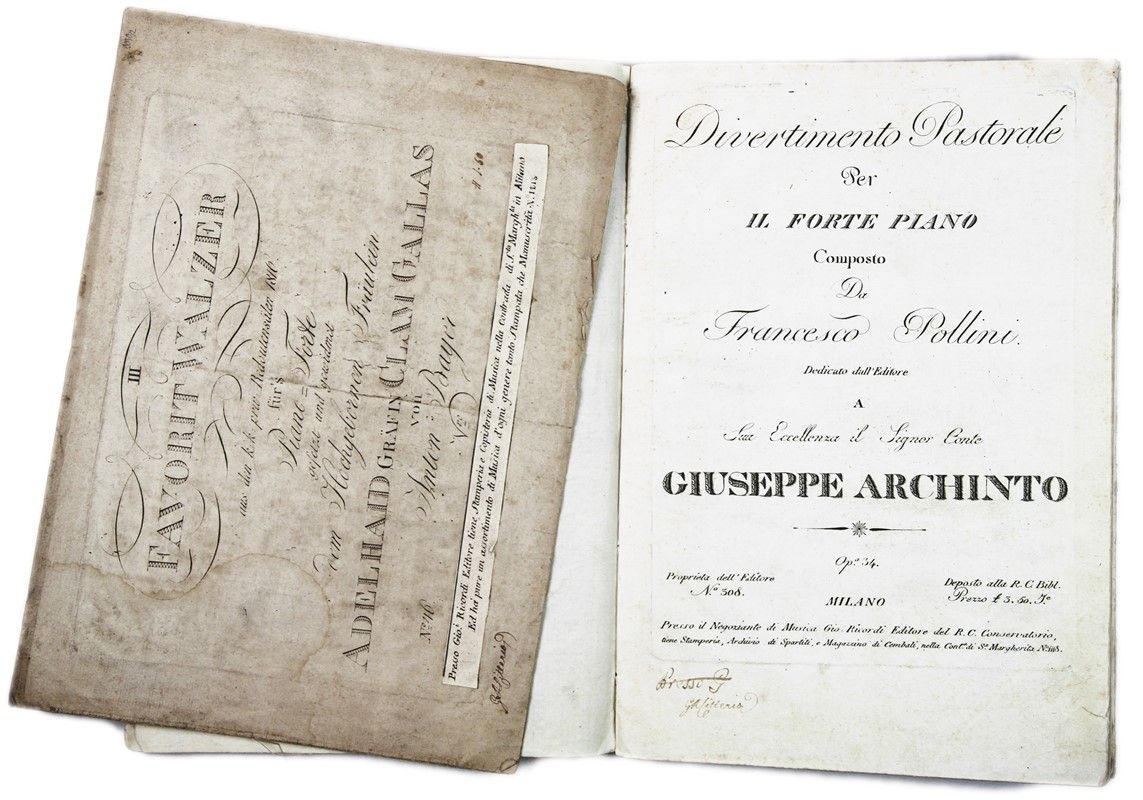 III
FAVORIT WALZER
aus den k. k. priv. Redoutensälen 1816
für's
Piano=Forte
gesetzt und gewidmet
dem Hochgebornen Fräulein
ADELHAID GRÄFIN CLAM GALLAS
von
Anton Prager
No. 46
₶ 1.50
Presso Gio. Ricordi Editore tiene Stamperia e Copisteria di Musica nella Contrada di Sta. Marghta. in Milano
Ed ha pure un assortimento di Musica d'ogni genere tanto Stampata che Manuscritta N. 1118
Divertimento Pastorale
Per
IL FORTE PIANO
Composto
Da
Francesco Pollini.
Dedicato dall'Editore
A
Sua Eccellenza il Signor Conte
GIUSEPPE ARCHINTO
Op.a 34.
Proprietà dell'Editore
N.o 308.
Deposto alla R. C. Bibl.
Prezzo £ 3. 50. I.e
MILANO
Presso il Negoziante di Musica Gio. Ricordi Editore del R. C. Conservatorio,
tiene Stamperia, Archivio di Spartiti, e Magazzino di Cembali, nella Cont.a di S.a Margherita No. 1118.